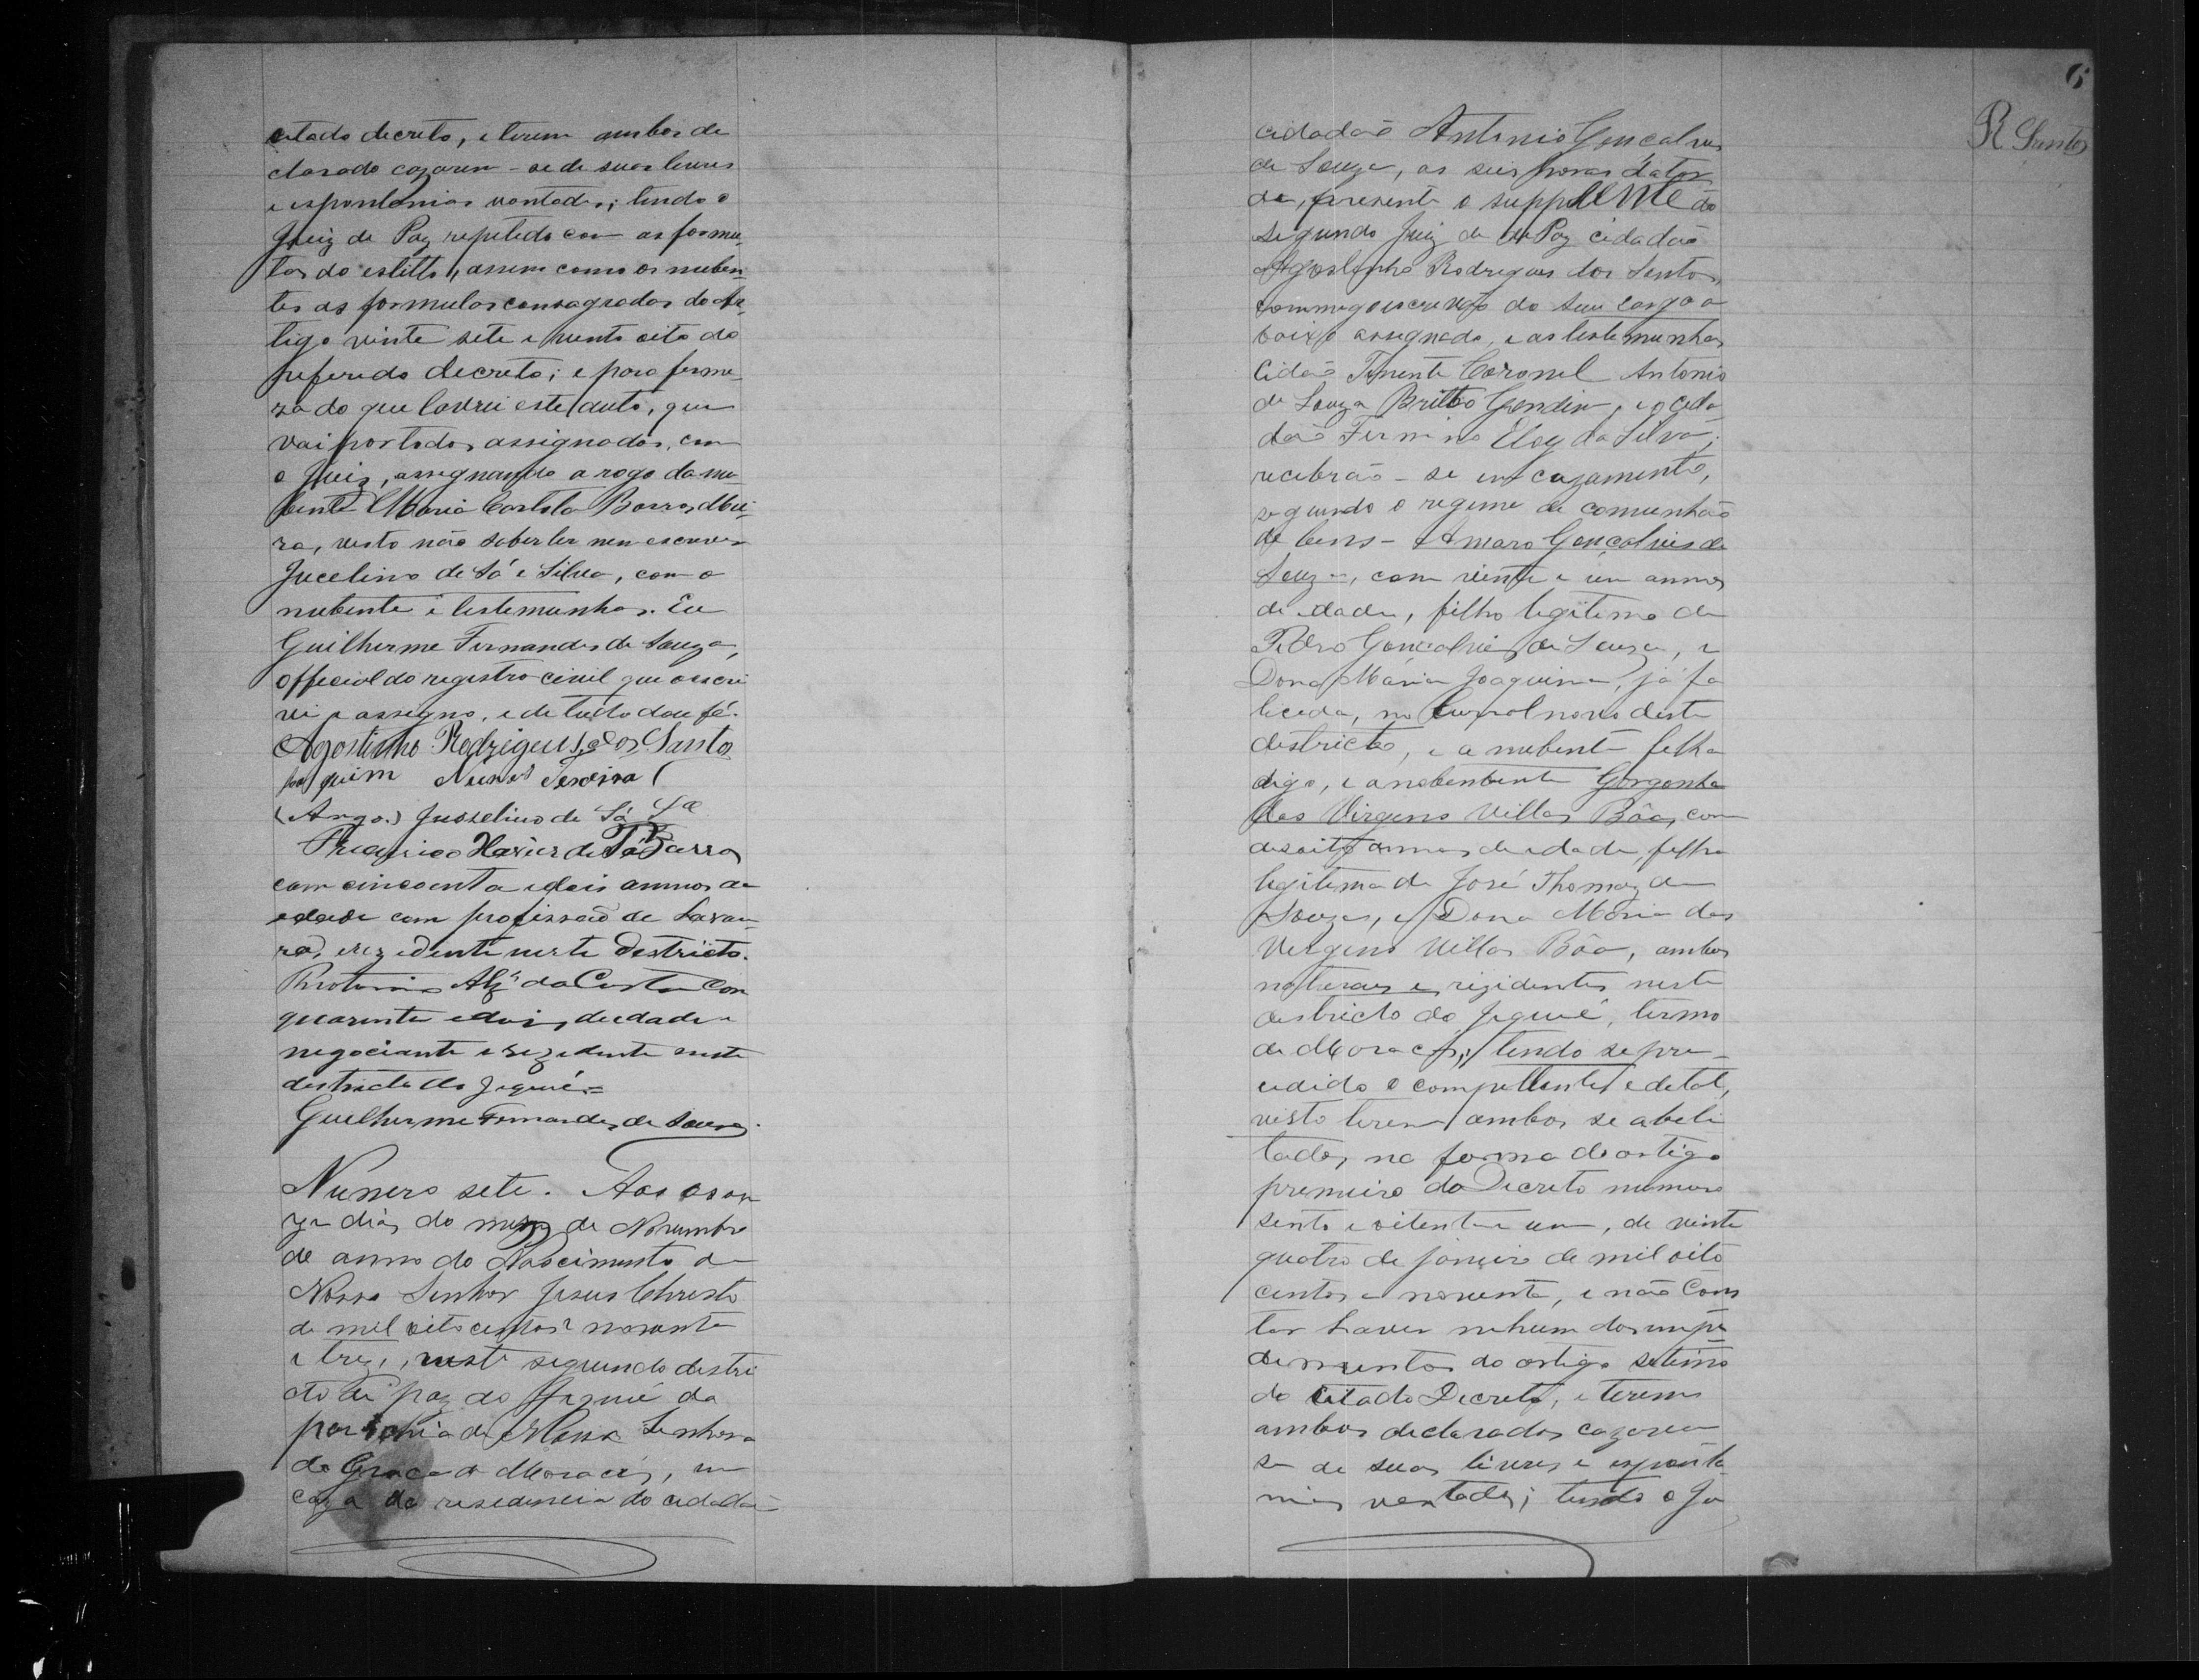 citado decreto, e terem ambos de
clarado cazarem-se de suas livres
e espontanias vontades; tendo o
Juiz de Paz repetido com as formu-
las do estillo, assim como os nuben-
tes as formulas consagradas do Ar-
tigo vinte sete e vinte oito do
referido decreto; e para firme-
za do que lavrei este auto, que
vai por todos assignados, com
o Juiz, assignando a rogo da nu-
bente Maria Carlota Barros Mei-
ra, visto não saber ler nem escrever
Jucelino de Sá e Silva, com o
nubente e testemunhas. Eu
Guilherme Fernandes de Souza,
official do registro civil que escri
vi e assigno, e de tudo dou fé.
Agostinho Rodrigues dos Santos
Joaquim Nunes
(Arogo.) Juoselino de Sá Sa
Xavier de Sá Barros
com cincoenta e dois annos de
edade com profissão de Lavau-
ra, erezidente neste Destricto.
da Costa Com
quarenta e dois de edade e
negociante e rezedente neste
destricto do Jequié =
Guelherme Fernandes de Souza.
Numero sete. Aos os on
ze dias do mez de Novembro
de anno do Nascimento de
Nosso Senhor Jesus Christo
de mil oito centos e noventa
e trez, neste segundo destri
cto de paz do Jequié da
parochia de Nossa Senhora
da Graça de Maracás, em
caza de residencia do cidadão
6
R Santos
cidadão Antonio Gonçalves
de Souza, as seis horas da tar
de, presente o supplente do
segundo Juiz de de Paz cidadão
Agostinho Rodrigues dos Santos,
commigo escrivão do seu cargo a
baixo assignado, e as testemunhas
Cidão Tenente Coronel Antonio
de Souza Britto Gondim, e o cida
dão Firmino Eloy da Silva;
receberão-se em cazamento,
segundo o regime de comunhão
de bens - Amaro Gonçalves de
Souza, com vinte e um annos
de idade, filho legitimo de
Pedro Gonçalves de Souza, e
Dona Maria Joaquina, já fa
lecida, no Curral novo deste
districto, e a nubente filha
digo, e a nubente Gorgonha
das Virgens Villas Bôas, com
desoito annos de edade, filha
legitima de José Thomaz de
Souza, e Dona Maria das
Virgens Villas Bôa, ambos
naturaes e rezidentes neste
destricto do Jequié, termo
de Maracás; tendo se pre-
cedido o compettente edital,
visto terem ambos se abeli
tado, na forma do artigo
premeiro do Decreto numero
sento e oitenta e um, de vinte
quatro de janeiro de mil oito
centos e noventa, e não Cons
tar haver nehum dos impe-
dementos do artigo setimo
do citado Decreto, e terem
ambos declarados cazarem
se de suas livres e esponta-
nias vontades; tendo o Ju